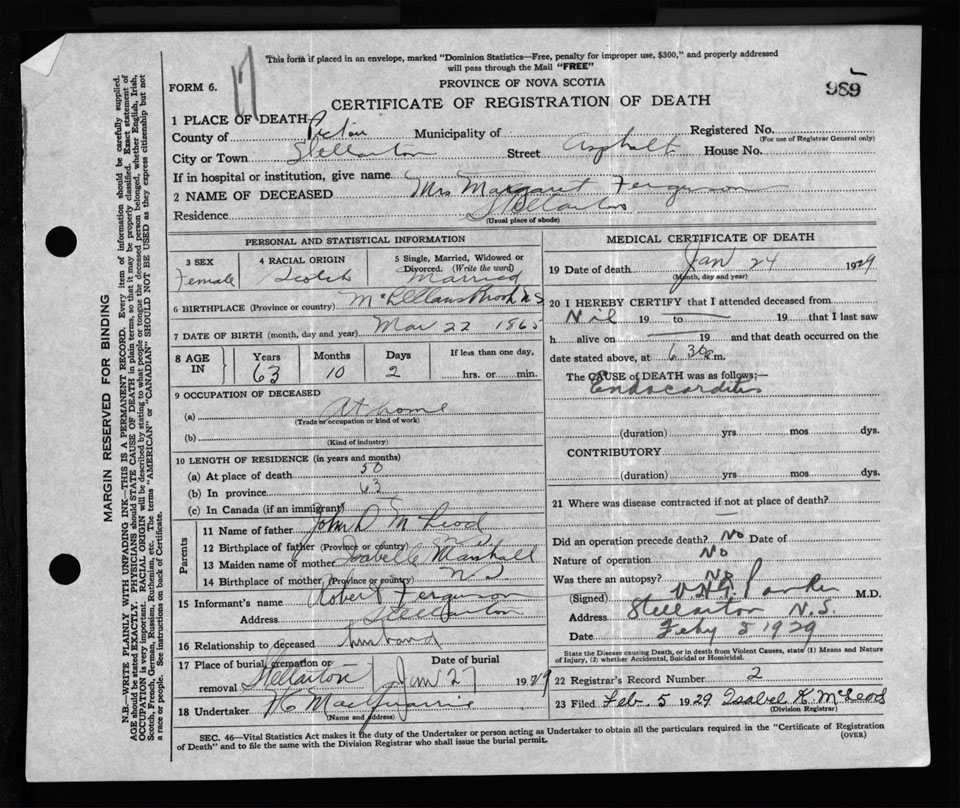 This form if placed in an envelope, marked "Dominion Statistics—Free, penalty for improper use, $300," and properly addressed
will pass through the Mail "FREE"
FORM 6.
17
PROVINCE OF NOVA SCOTIA
989
CERTIFICATE OF REGISTRATION OF DEATH
1 PLACE OF DEATH
County of Pictou Municipality of Registered No.
(For use of Registrar General only)
City or Town Stellarton Street Asphalt House No.
If in hospital or institution, give name
2 NAME OF DECEASED Mrs Margaret Ferguson
Residence Stellarton
(Usual place of abode)
PERSONAL AND STATISTICAL INFORMATION
3 SEX 4 RACIAL ORIGIN 5 Single, Married, Widowed or Divorced. (Write the word)
Female Scotch Married
6 BIRTHPLACE (Province or country) McLellans Brook N S
7 DATE OF BIRTH (month, day and year) Mar 22 1865
8 AGE IN Years Months Days If less than one day,
63 10 2 hrs. or min.
9 OCCUPATION OF DECEASED
(a) At home
(Trade or occupation or kind of work)
(b)
(Kind of industry)
10 LENGTH OF RESIDENCE (in years and months)
(a) At place of death 50
(b) In province 63
(c) In Canada (if an immigrant)
Parents
11 Name of father John D McLeod
12 Birthplace of father (Province or country) N S
13 Maiden name of mother Isabelle Marshall
14 Birthplace of mother (Province or country) N S
15 Informant's name Robert Ferguson
Address Stellarton
16 Relationship to deceased husband
17 Place of burial, cremation or removal Stellarton Date of burial Jan 27 1929
18 Undertaker MacQuarrie
(Name and address)
MEDICAL CERTIFICATE OF DEATH
19 Date of death Jan 24 1929
(Month, day and year)
20 I HEREBY CERTIFY that I attended deceased from
Nil 19 to 19 that I last saw
h alive on 19 and that death occurred on the
date stated above, at 6.30 m.
The CAUSE of DEATH was as follows:—
Endocarditis
(duration) yrs mos dys.
CONTRIBUTORY
(duration) yrs mos dys.
21 Where was disease contracted if not at place of death?
Did an operation precede death? No Date of
Nature of operation No
Was there an autopsy? No
(Signed) Parker M.D.
Address Stellarton N.S.
Date Feby 5 1929
State the Disease causing Death, or in death from Violent Causes, state (1) Means and Nature
of Injury, (2) whether Accidental, Suicidal or Homicidal.
22 Registrar's Record Number 2
23 Filed Feb. 5 1929 Isabel K. McLeod
(Division Registrar)
SEC. 46—Vital Statistics Act makes it the duty of the Undertaker or person acting as Undertaker to obtain all the particulars required in the "Certificate of Registration
of Death" and to file the same with the Division Registrar who shall issue the burial permit.
(OVER)
MARGIN RESERVED FOR BINDING
N.B.—WRITE PLAINLY WITH UNFADING INK—THIS IS A PERMANENT RECORD. Every item of information should be carefully supplied.
AGE should be stated EXACTLY. PHYSICIANS should STATE CAUSE OF DEATH in plain terms, so that it may be properly classified. Exact statement of
OCCUPATION is very important. RACIAL ORIGIN will be described by stating to what people or tongue the deceased person belonged, whether English, Irish,
Scotch, French, German, Russian, Ruthenian, etc. The terms "AMERICAN" or "CANADIAN" SHOULD NOT BE USED as they express citizenship but not
a race or people. See instructions on back of Certificate.